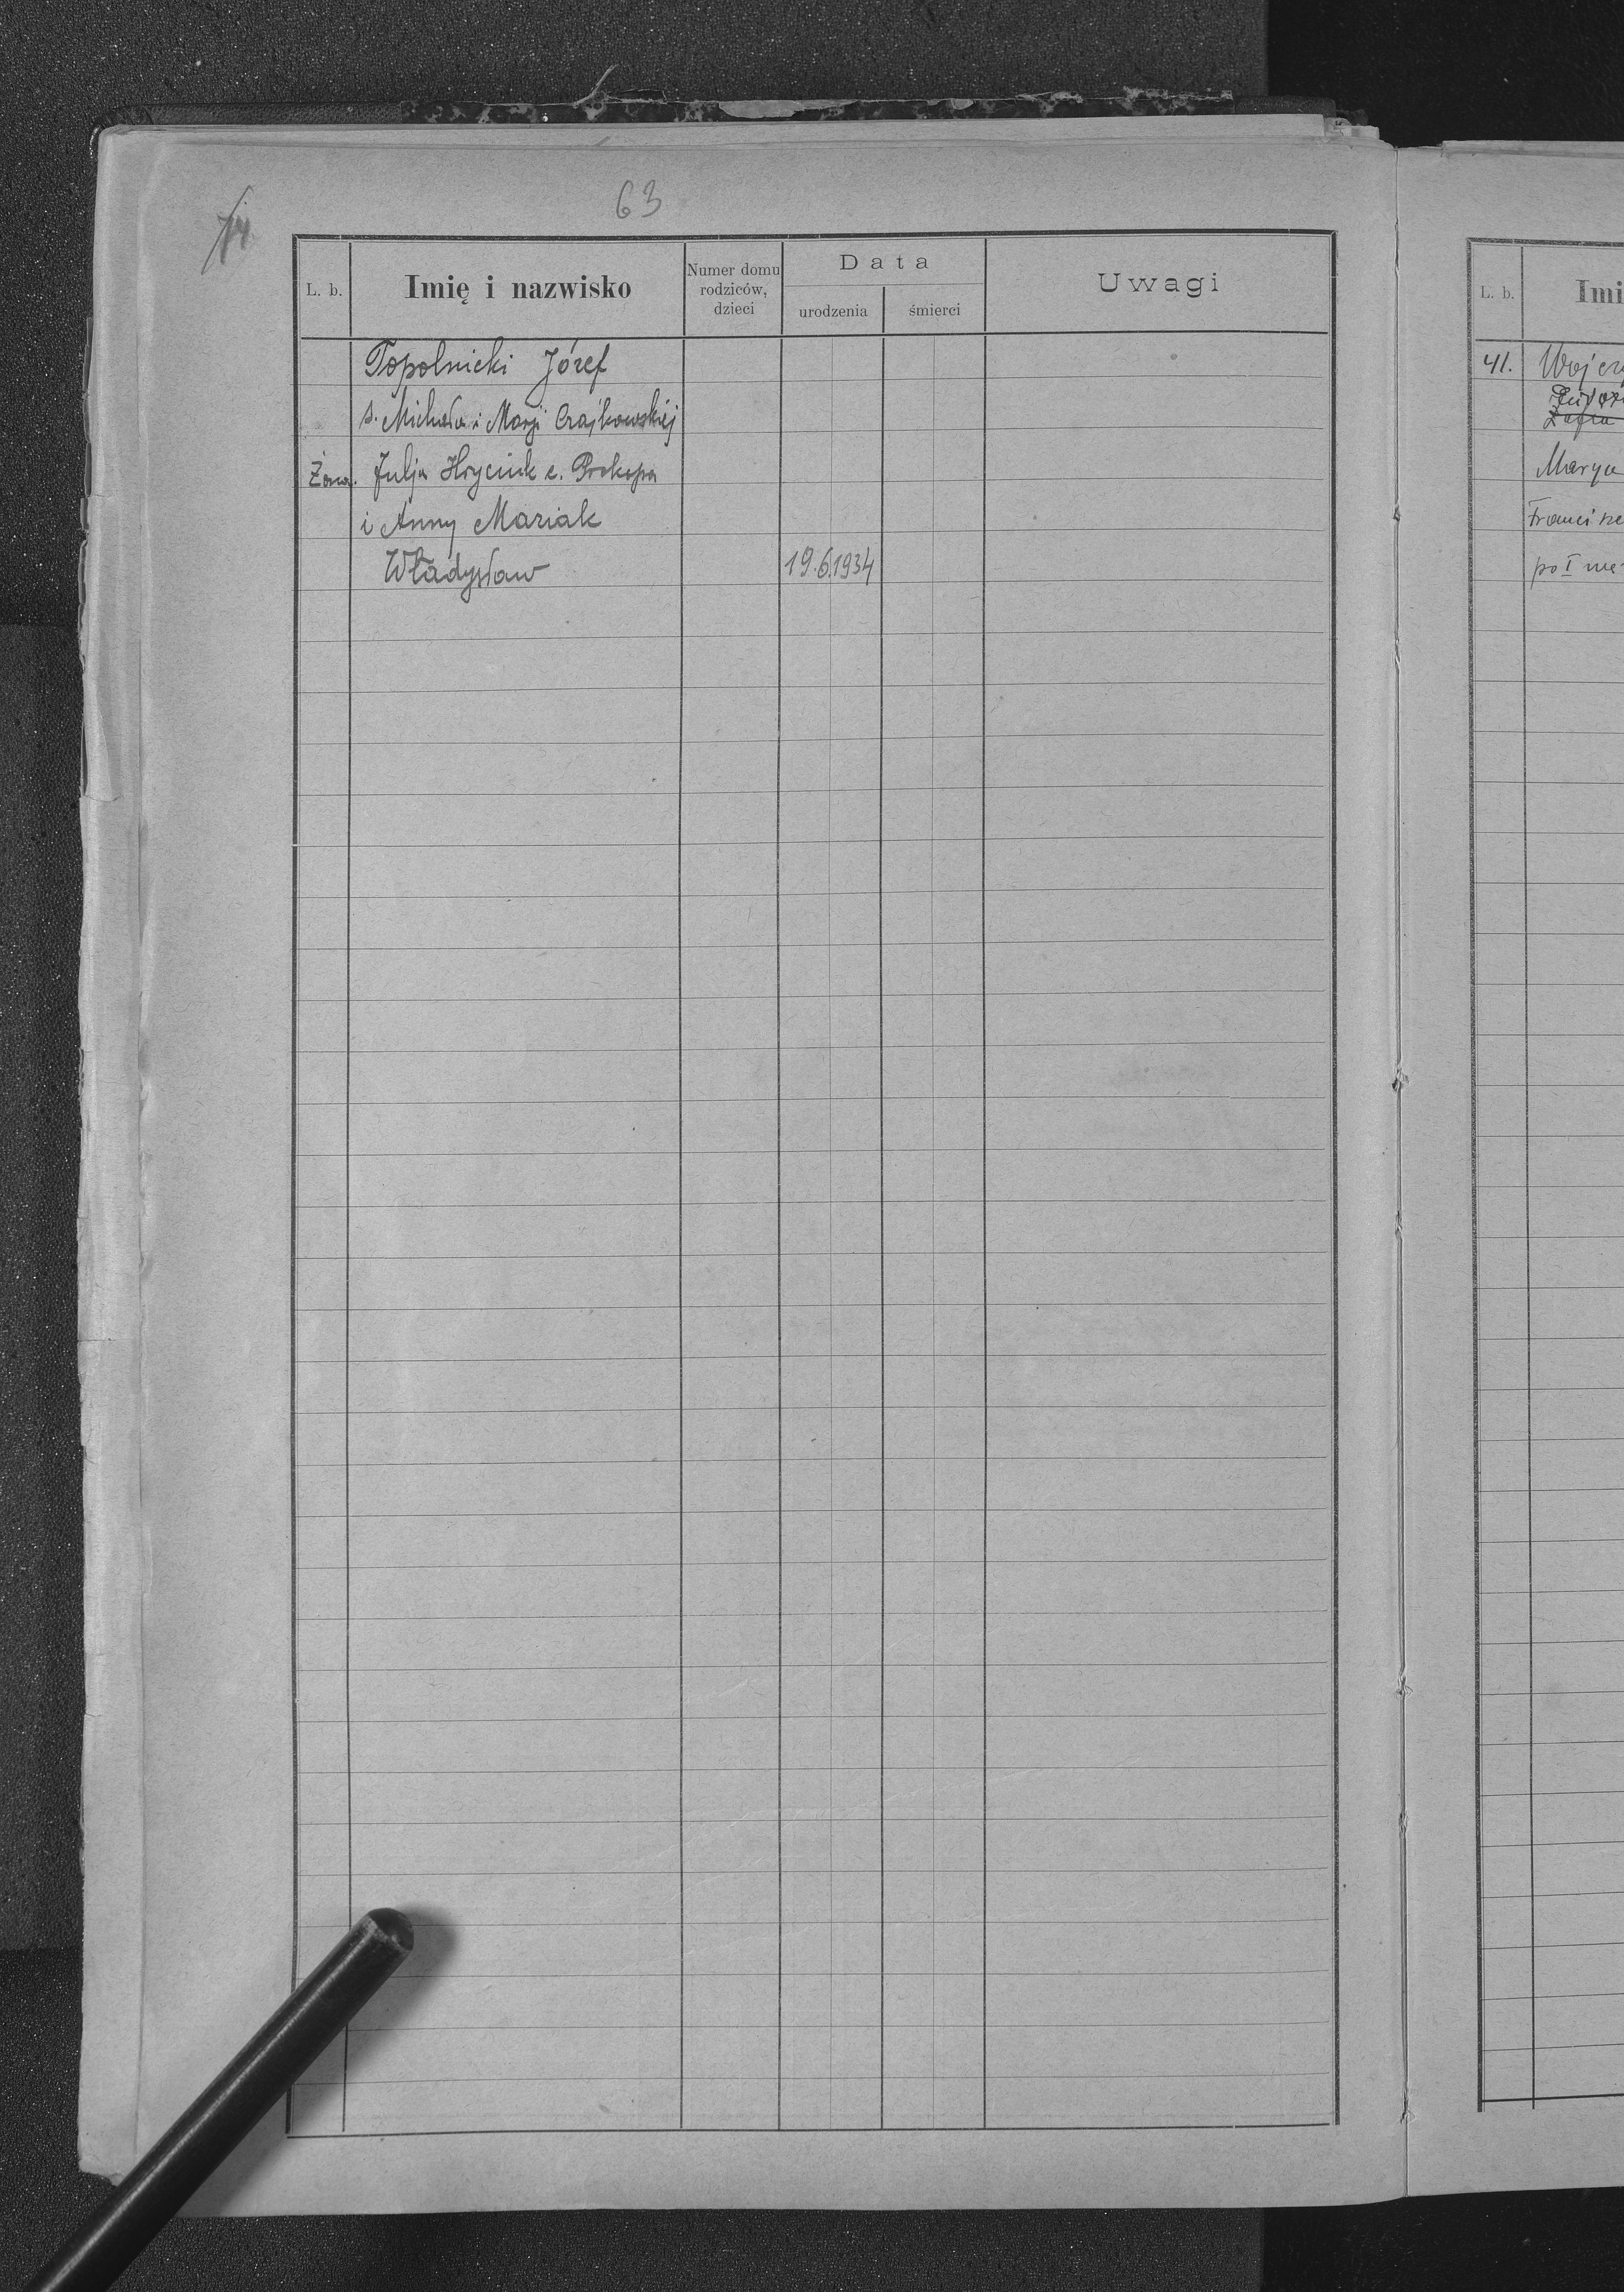 63
L. b.
Imię i nazwisko
Numer domu rodziców, dzieci
Data
urodzenia
śmierci
Uwagi
Topolnicki Józef
s. Michała i Marji Czajkowskiéj
Żona. Julja Hryciuk c. Prokopa
i Anny Maziak
Władysław 19.6.1934
L. b.
Imi
41. Wojcz
Zofia
Marya
Francisz
po I mę